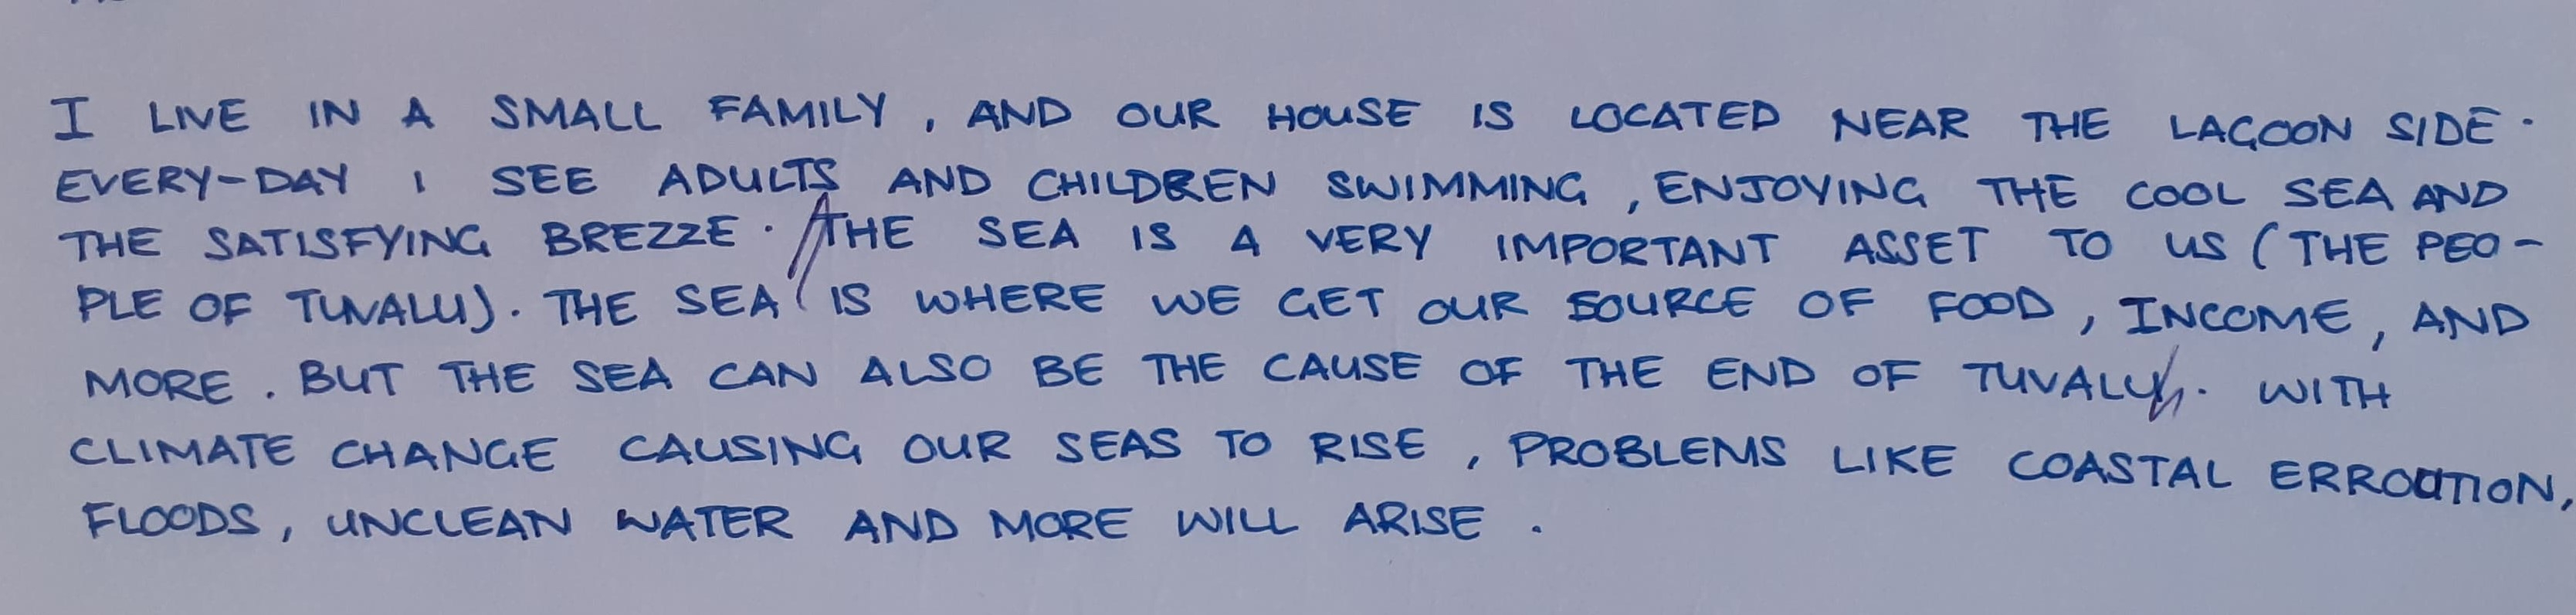 I LIVE IN A SMALL FAMILY, AND OUR HOUSE IS LOCATED NEAR THE LAGOON SIDE.
EVERY-DAY I SEE ADULTS AND CHILDREN SWIMMING, ENJOYING THE COOL SEA AND
THE SATISFYING BREZZE. THE SEA IS A VERY IMPORTANT ASSET TO US (THE PEO-
PLE OF TUVALU). THE SEA IS WHERE WE GET OUR SOURCE OF FOOD, INCOME, AND
MORE. BUT THE SEA CAN ALSO BE THE CAUSE OF THE END OF TUVALU. WITH
CLIMATE CHANGE CAUSING OUR SEAS TO RISE, PROBLEMS LIKE COASTAL ERROUTION,
FLOODS, UNCLEAN WATER AND MORE WILL ARISE.